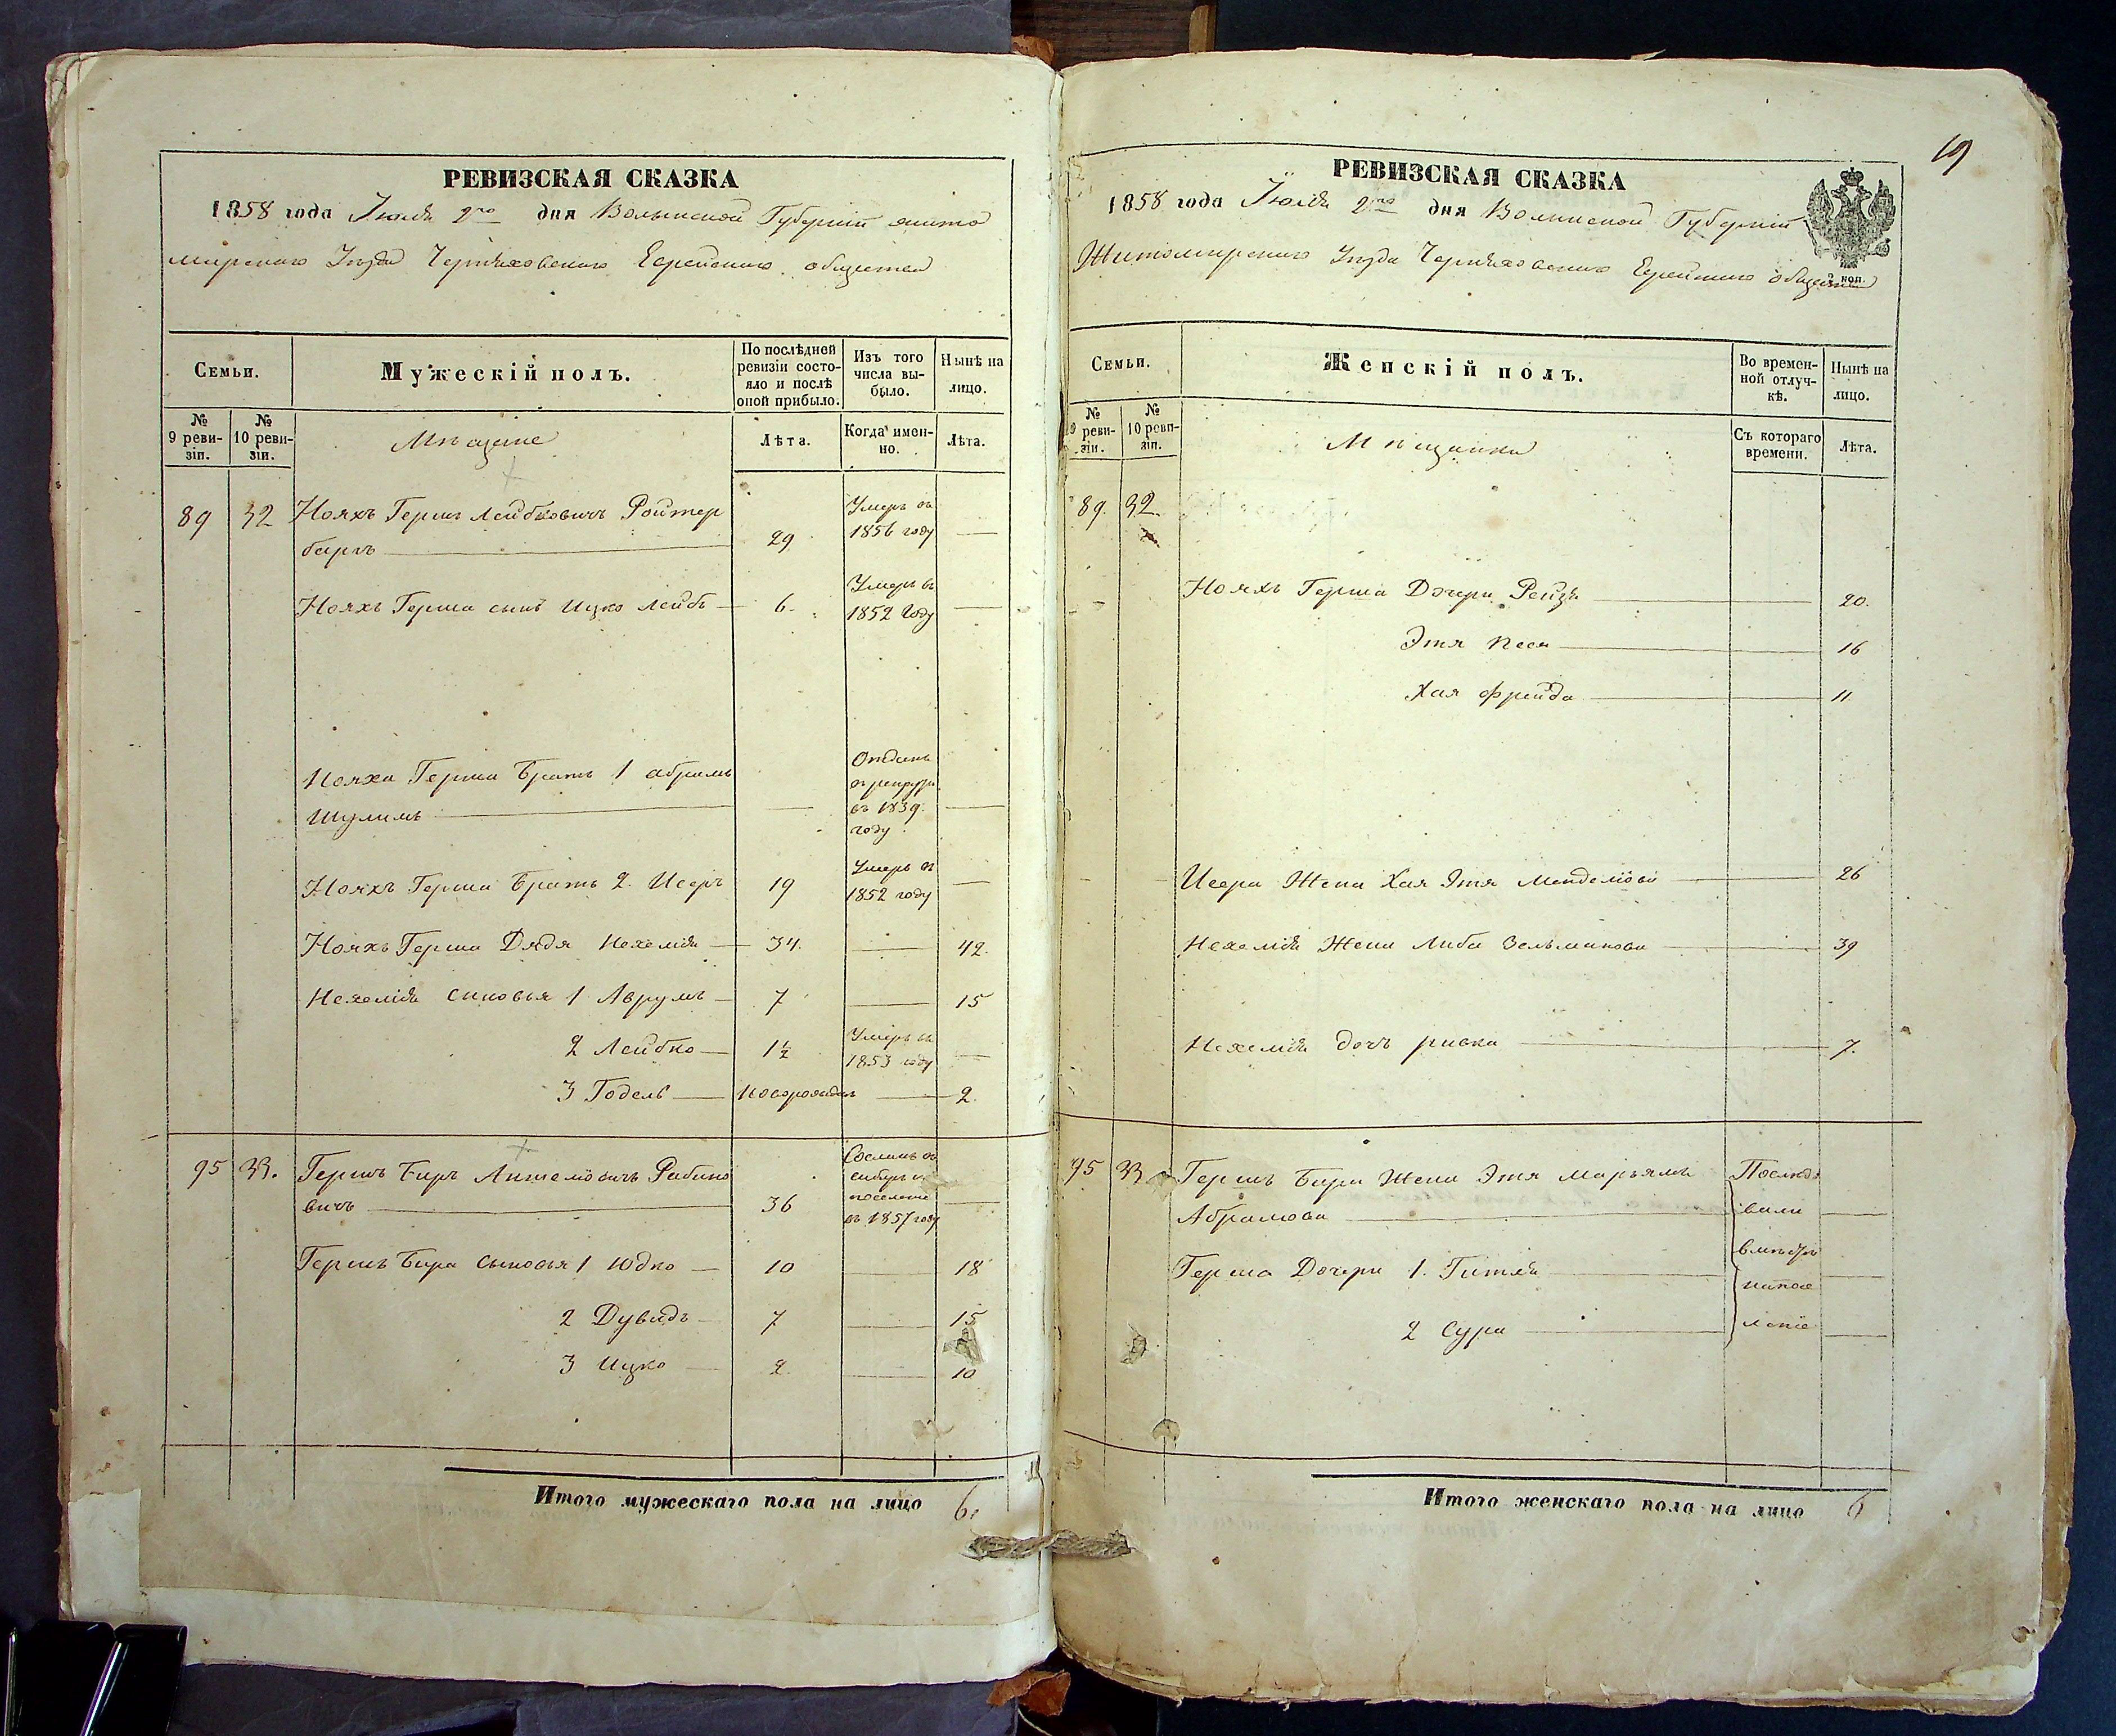 РЕВИЗСКАЯ СКАЗКА
1858 года Іюля 2го дня Волынской Губерніи жито
мирскаго Уѣзда Черняховскаго Еврейскаго общества
Семьи.
Мужескій полъ.
По послѣдней
ревизіи состо-
яло и послѣ
оной прибыло.
Изъ того
числа вы-
было.
Нынѣ на
лицо.
№
9 реви-
зіи.
№
10 реви-
зіи.
Мѣщане
Лѣта.
Когда имен-
но.
Лѣта.
89 32 Нояхъ Гершъ Лейбковичъ Ройтер
баргъ 29
Умеръ въ
1856 году
Нояхъ Герша сынъ Ицко Лейбъ 6
Умеръ въ
1852 году
Нояха Герша Братъ 1 Абрамъ
Шулимъ
Отданъ
въ рекруты
въ 1839
году
Нояхъ Герша Братъ 2. Исеръ 19
Умеръ въ
1852 году
Нояхъ Герша Дядя Нехемія 34. 42.
Нехемія сыновья 1 Аврумъ 7 15
2 Лейбко 1½
Умеръ въ
1853 году
3 Годель новорожденъ 2.
95 33. Гершъ Беръ Аншелiовичъ Рабино
вичъ 36
Сосланъ въ
сибирь на
поселеніе
въ 1857 году
Гершъ Бера Сыновья 1 Юдко 10 18
2 Дувидъ 7 15
3 Ицко 2. 10
Итого мужескаго пола на лицо 6.
19
РЕВИЗСКАЯ СКАЗКА
1858 года Іюля 2го дня Волынской Губерніи
Житомирскаго Уѣзда Черняховскаго Еврейскаго общества
коп.
Семьи.
Женскій полъ.
Во времен-
ной отлуч-
кѣ.
Нынѣ на
лицо.
№
9 реви-
зіи.
№
10 реви-
зіи.
Мѣщанки
Съ котораго
времени.
Лѣта.
89. 32.
Нояхъ Герша Дочери Рейзя 20.
Этя Песя 16
Хая Фрейда 11.
Исера Жена Хая Этя Менделiова 26
Нехемія Жена Либа Зельманова 39
Нехемія дочь ривка 7.
95 33 Гершъ Бера Жена Этя Марьямъ
Абрамова
Герша Дочери 1. Гитля
2 Сура
Послѣдо
вали
въ сибирь
на посе
леніе
Итого женскаго пола на лицо 6